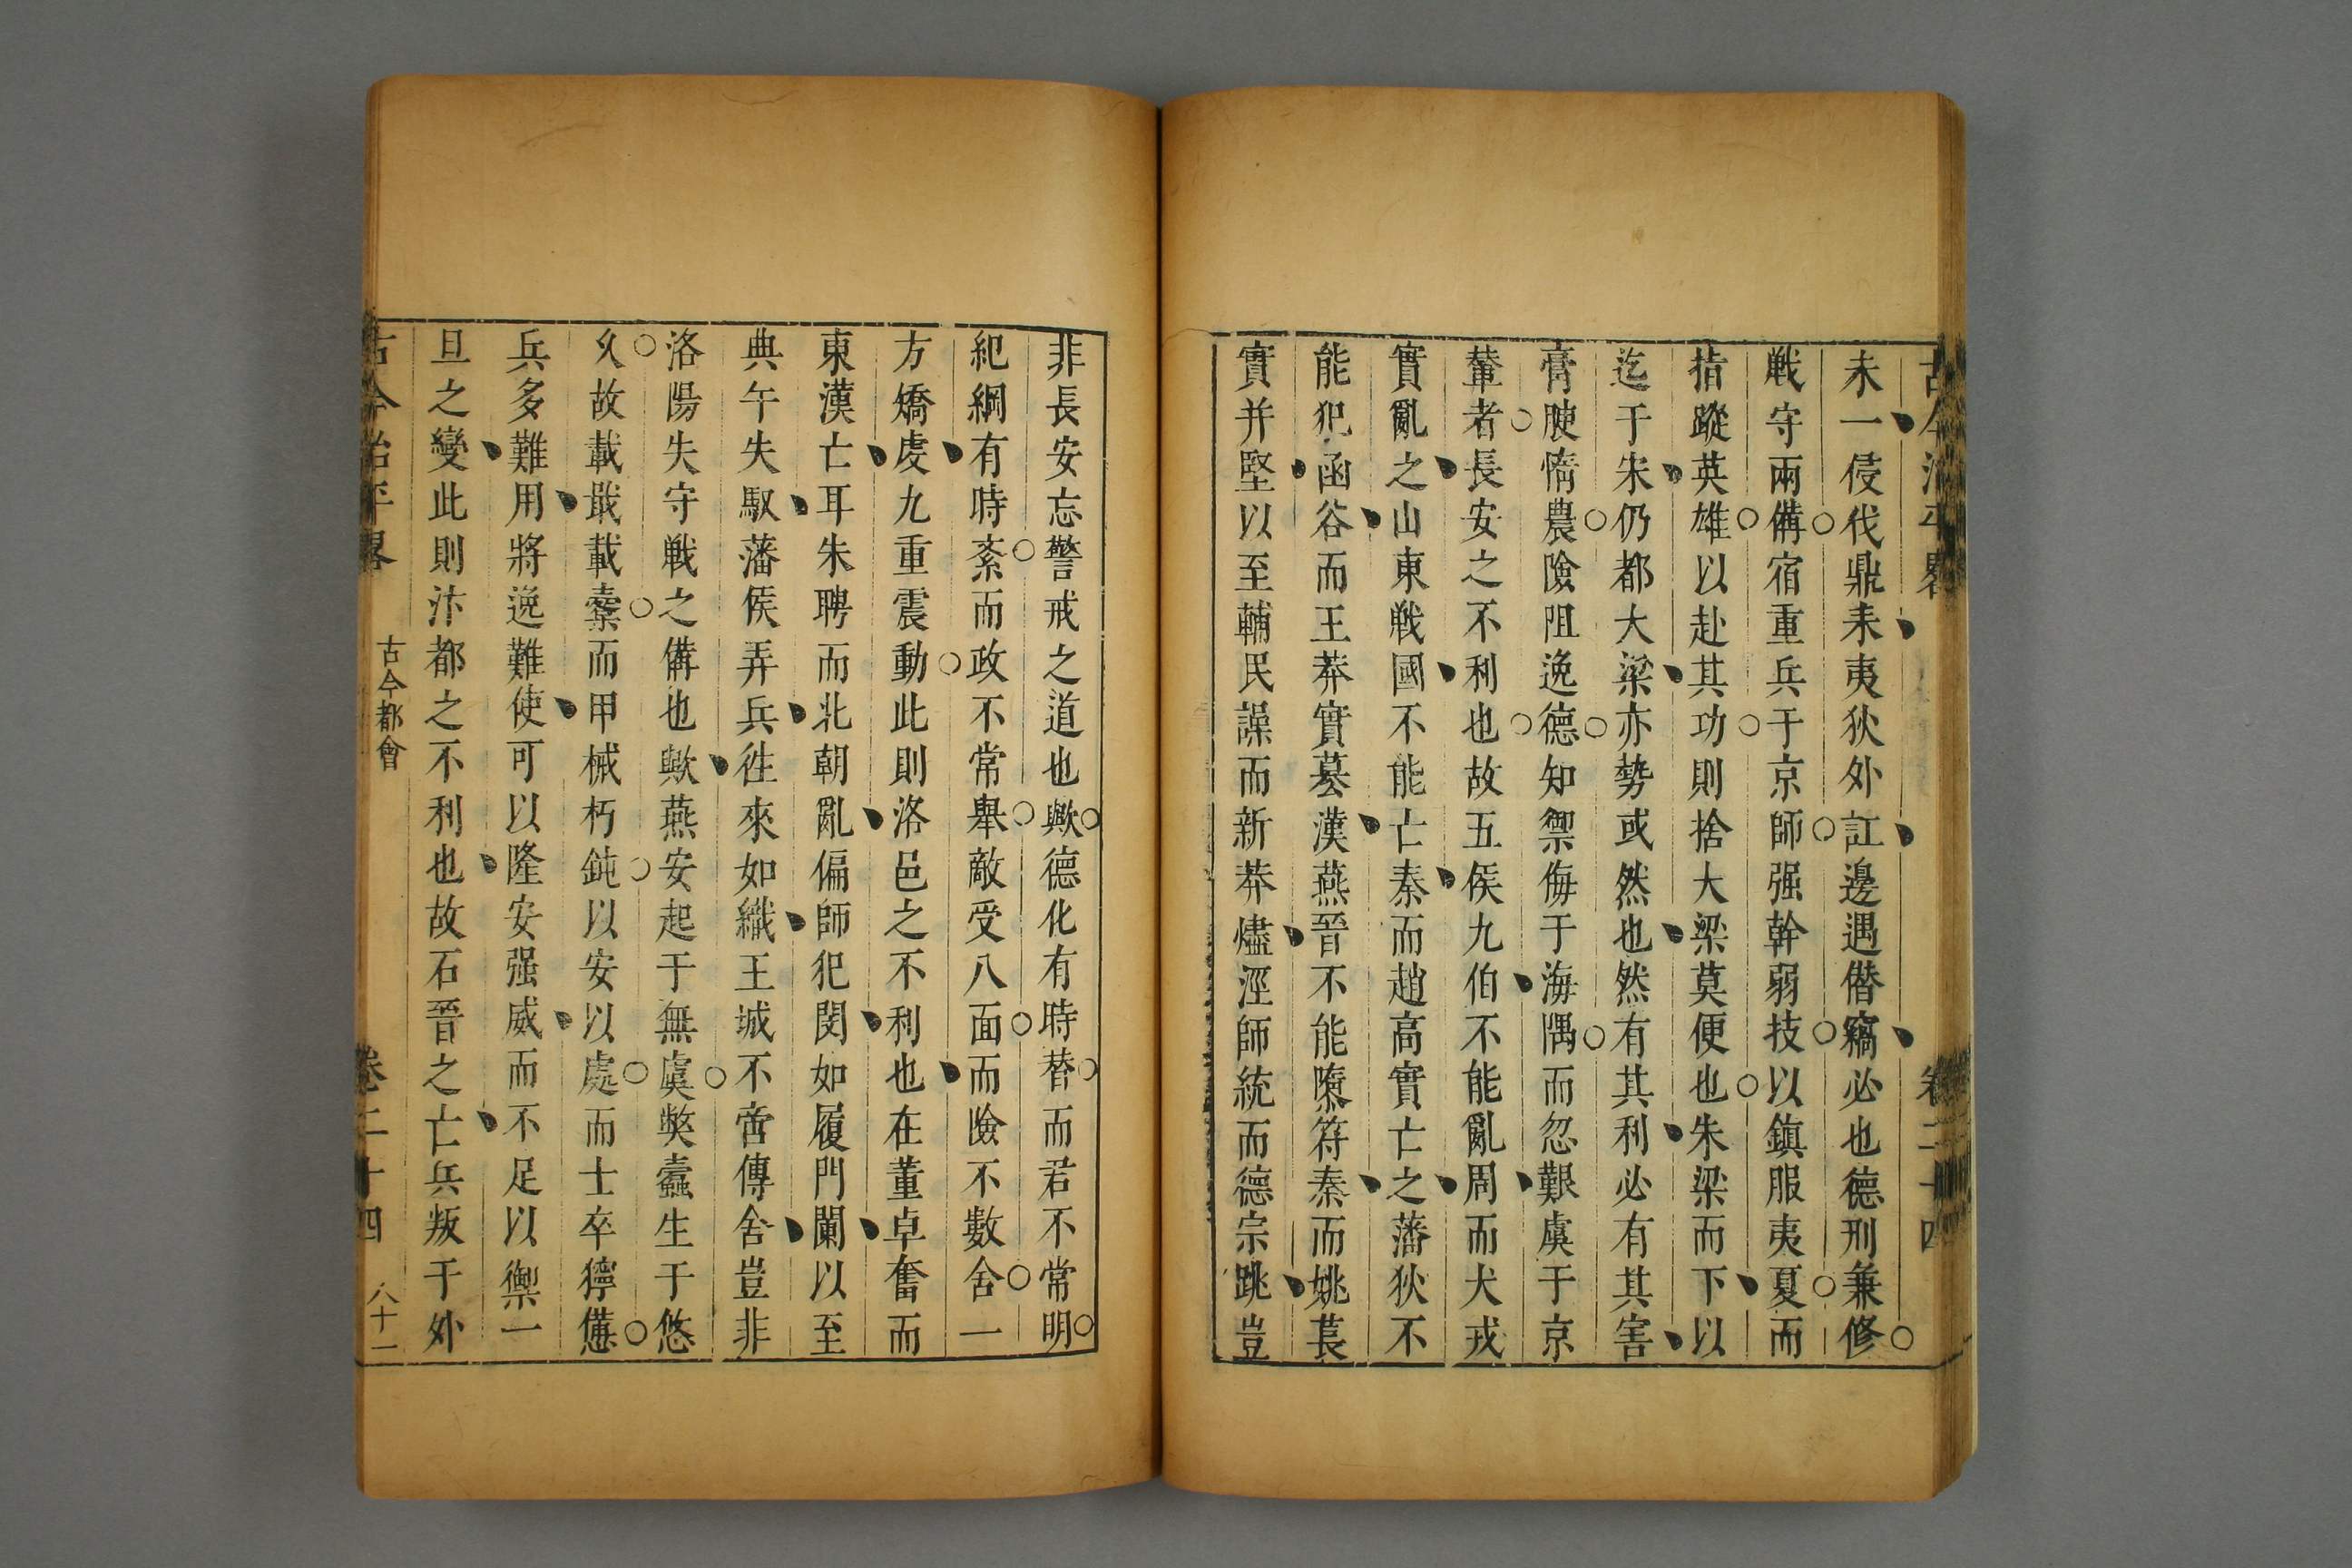 古今治平畧 卷二十四
未一侵伐鼎耒夷狄外訌邊遇僭竊必也德刑兼修
戰守兩備宿重兵于京師强幹弱技以鎮服夷夏而
指蹤英雄以赴其功則捨大梁莫便也朱梁而下以
迄于宋仍都大梁亦勢或然也然有其利必有其害
膏腴惰農險阻逸德知禦侮于海隅而忽艱虞于京
輦者長安之不利也故五侯九伯不能亂周而犬戎
實亂之山東戰國不能亡秦而趙高實亡之藩狄不
能犯函谷而王莽實墓漢燕晉不能隳符秦而姚萇
實并堅以至輔民譟而新莽燼涇師統而德宗跳豈
非長安忘警戒之道也歟德化有時替而君不常明
紀綱有時紊而政不常舉敵受八面而險不數舍一
方矯虔九重震動此則洛邑之不利也在董卓奮而
東漢亡耳朱聘而北朝亂偏師犯閔如履門闌以至
典午失馭藩侯弄兵徃來如織王城不啻傳舍豈非
洛陽失守戰之備也歟燕安起于無虞獘蠹生于悠
久故載戢載櫜而甲械朽鈍以安以處而士卒獰憊
兵多難用將逸難使可以隆安强威而不足以禦一
旦之變此則汴都之不利也故石晉之亡兵叛于外
古今治平畧 古今都會 卷二十四 八十一